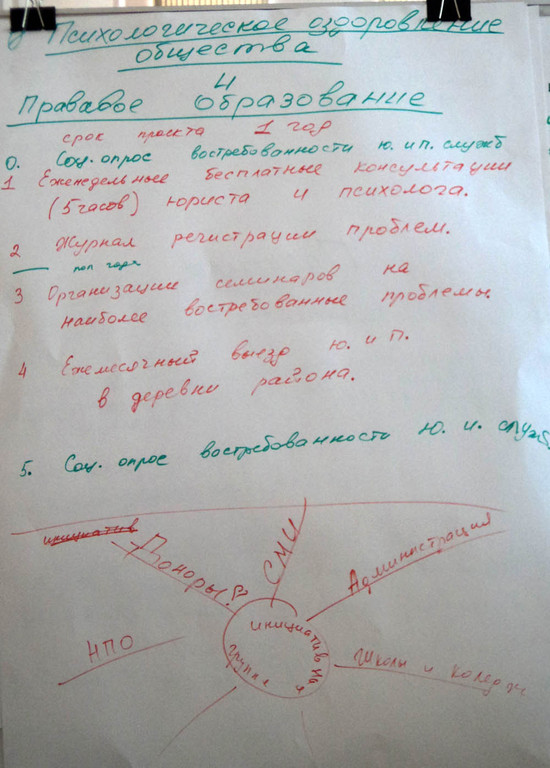 Психологическое оздоровление
общества
и
Прававое образование
срок проекта 1 год
0. Соц. опрос востребованности ю. и п. служб
1 Еженедельные бесплатные консультации
(5 часов) юриста и психолога.
2 Журнал регистрации проблем.
пол года
3 Организации семинаров на
наиболее востребованные проблемы.
4 Ежемесячный выезд ю. и п.
в деревни района.
5. Соц. опрос востребованности ю. и. служб.
инициатив
Доноры?
СМИ
Администрация
НПО
инициативная
группа
Школы и колледж